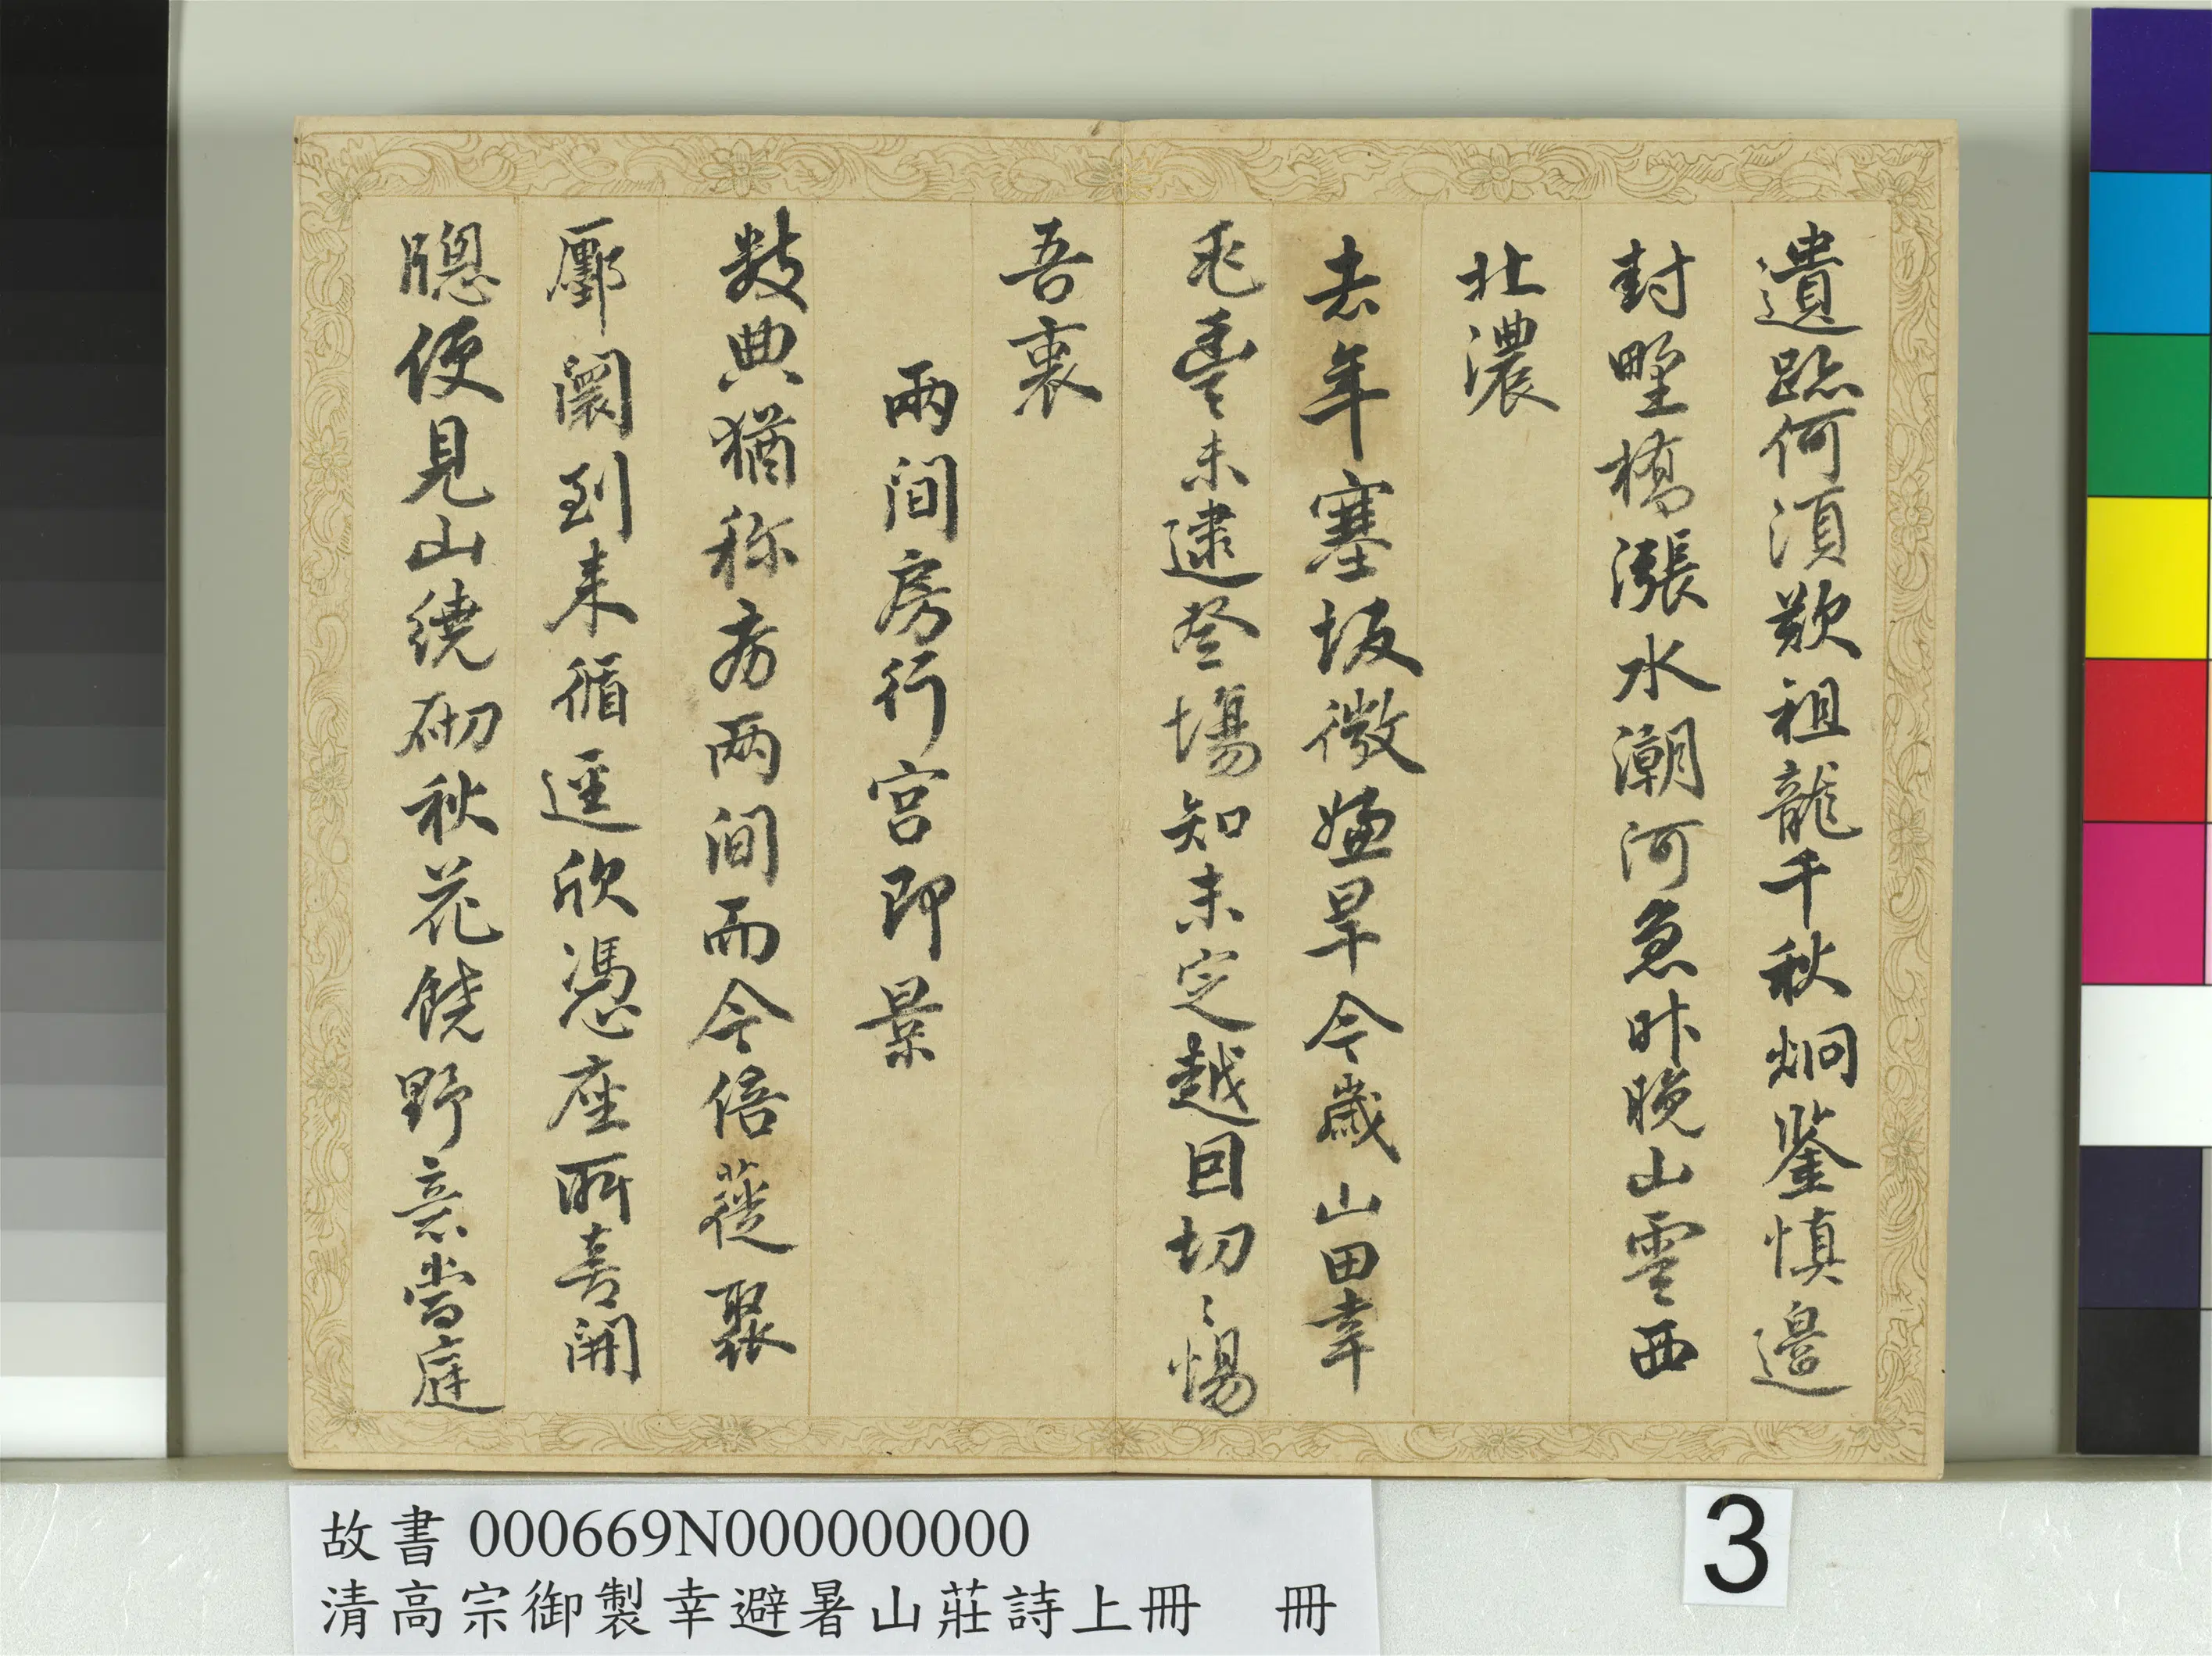 遺跡何須歎祖龍千秋炯鑒慎邊
封野橋漲水潮河急昨晚山雲西
北濃
去年塞坂微嫌旱今歲山田幸
兆豐未逮登場知未定越因切〻惕
吾衷
兩間房行宮即景
數典猶称房兩間而今倍蓰聚
鄽闤到来循逕欣憑座所喜開
牕便見山繞砌秋花饒野意當庭
3
故書 000669N000000000
清高宗御製幸避暑山莊詩上冊 冊